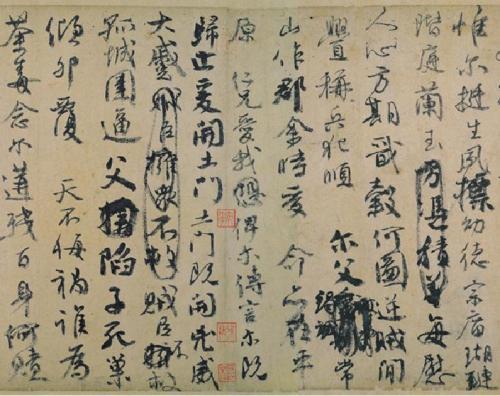 惟尔挺生夙標幼德宗廟瑚璉
階庭蘭玉方憑積善每慰
人心方期戩穀何圖逆賊閒
釁稱兵犯順尔父竭誠常
山作郡余時受命亦在平
原仁兄愛我恐俾尔傳言尔既
歸止爰開土門土門既開凶威
大蹙賊臣擁眾不救賊臣不救
孤城圍逼父陷子死巢
傾卵覆天不悔禍誰為
荼毒念尔遘殘百身何贖